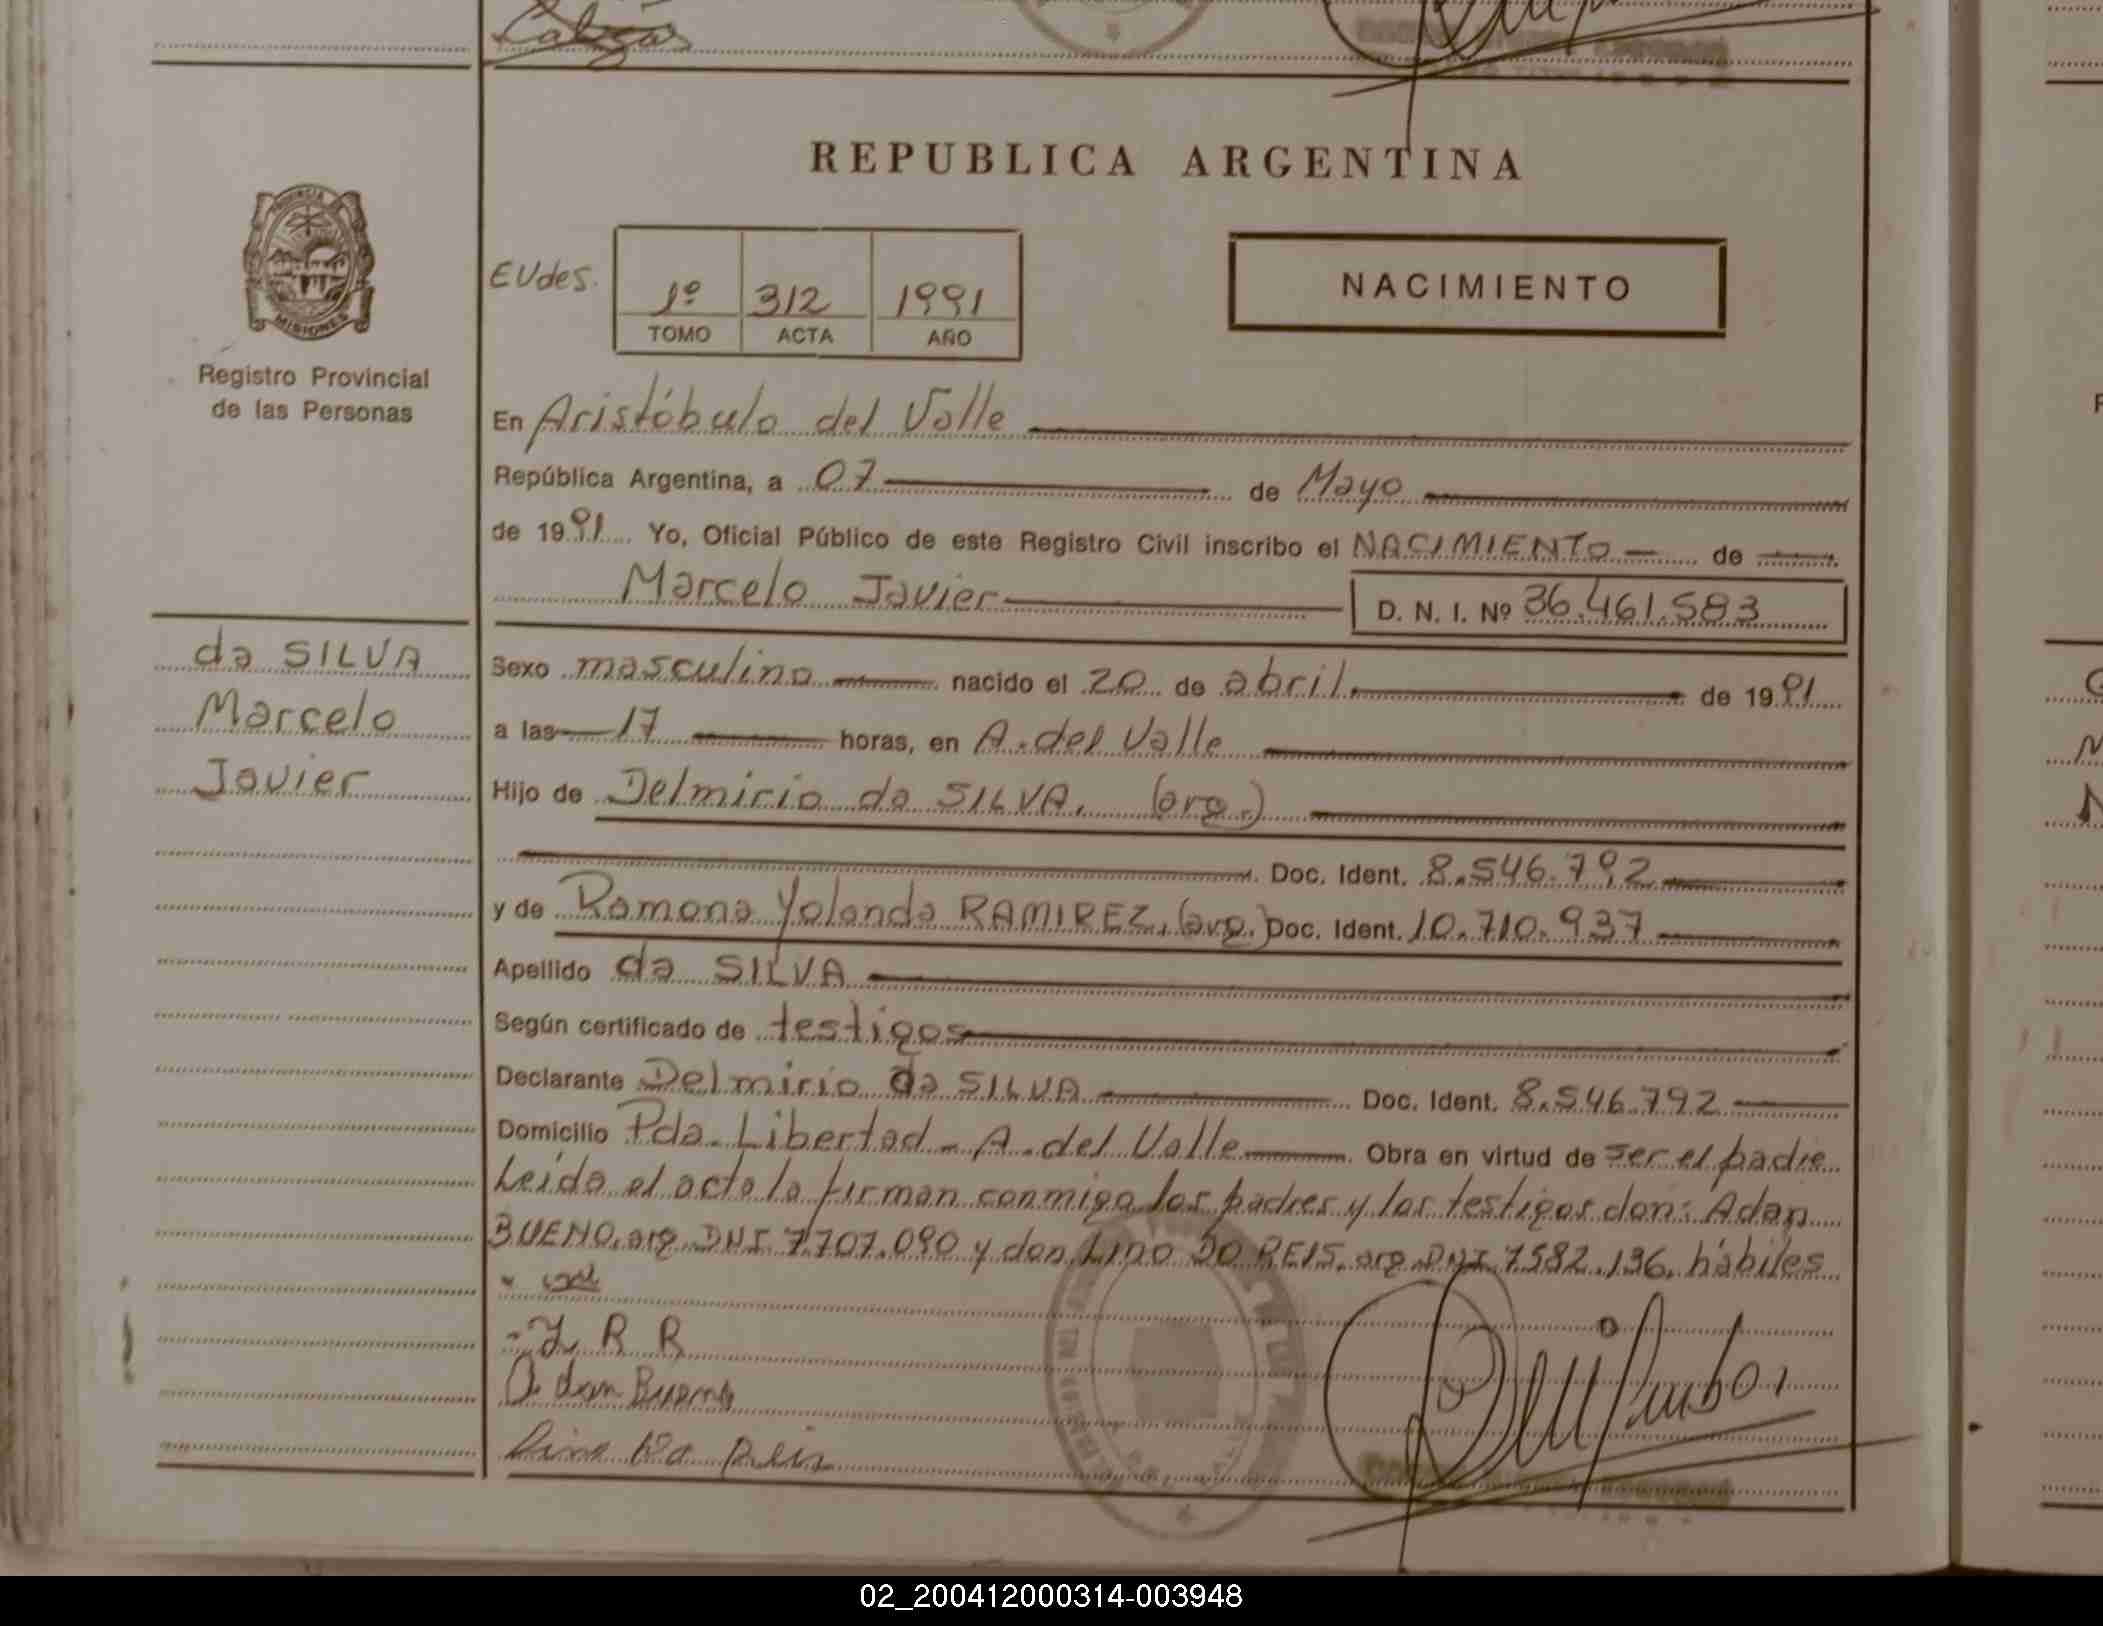 REPUBLICA ARGENTINA
PROVINCIA DE
MISIONES
Registro Provincial
de las Personas
EUdes.
1º 312 1991
TOMO ACTA AÑO
NACIMIENTO
En Aristóbulo del Valle
República Argentina, a 07 de Mayo
de 1991 Yo, Oficial Público de este Registro Civil inscribo el NACIMIENTO de
Marcelo Javier D. N. I. Nº 36.461.583
da SILVA
Marcelo
Javier
Sexo masculino nacido el 20 de abril. de 1991
a las 17 horas, en A. del Valle
Hijo de Delmirio da SILVA. (arg.)
Doc. Ident. 8.546.792
y de Ramona Yolanda RAMIREZ. (arg.) Doc. Ident. 10.710.937
Apellido da SILVA
Según certificado de testigos
Declarante Delmirio da SILVA Doc. Ident. 8.546.792
Domicilio Pda. Libertad - A. del Valle Obra en virtud de ser el padre
Leída el acta la firman conmigo los padres y los testigos don: Adan
BUENO. arg. DNI 7.707.090 y don LINO DO REIS. arg. DNI. 7582.136. hábiles
Y R R
Adan Bueno
Lino Do Reis
02_200412000314-003948